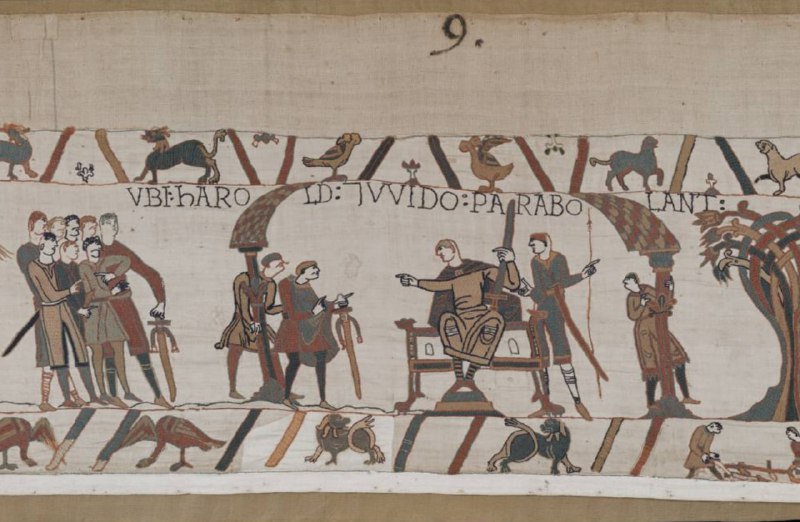 9.
VBI: hARO LD: ⁊VVIDO: PARABO LANT: